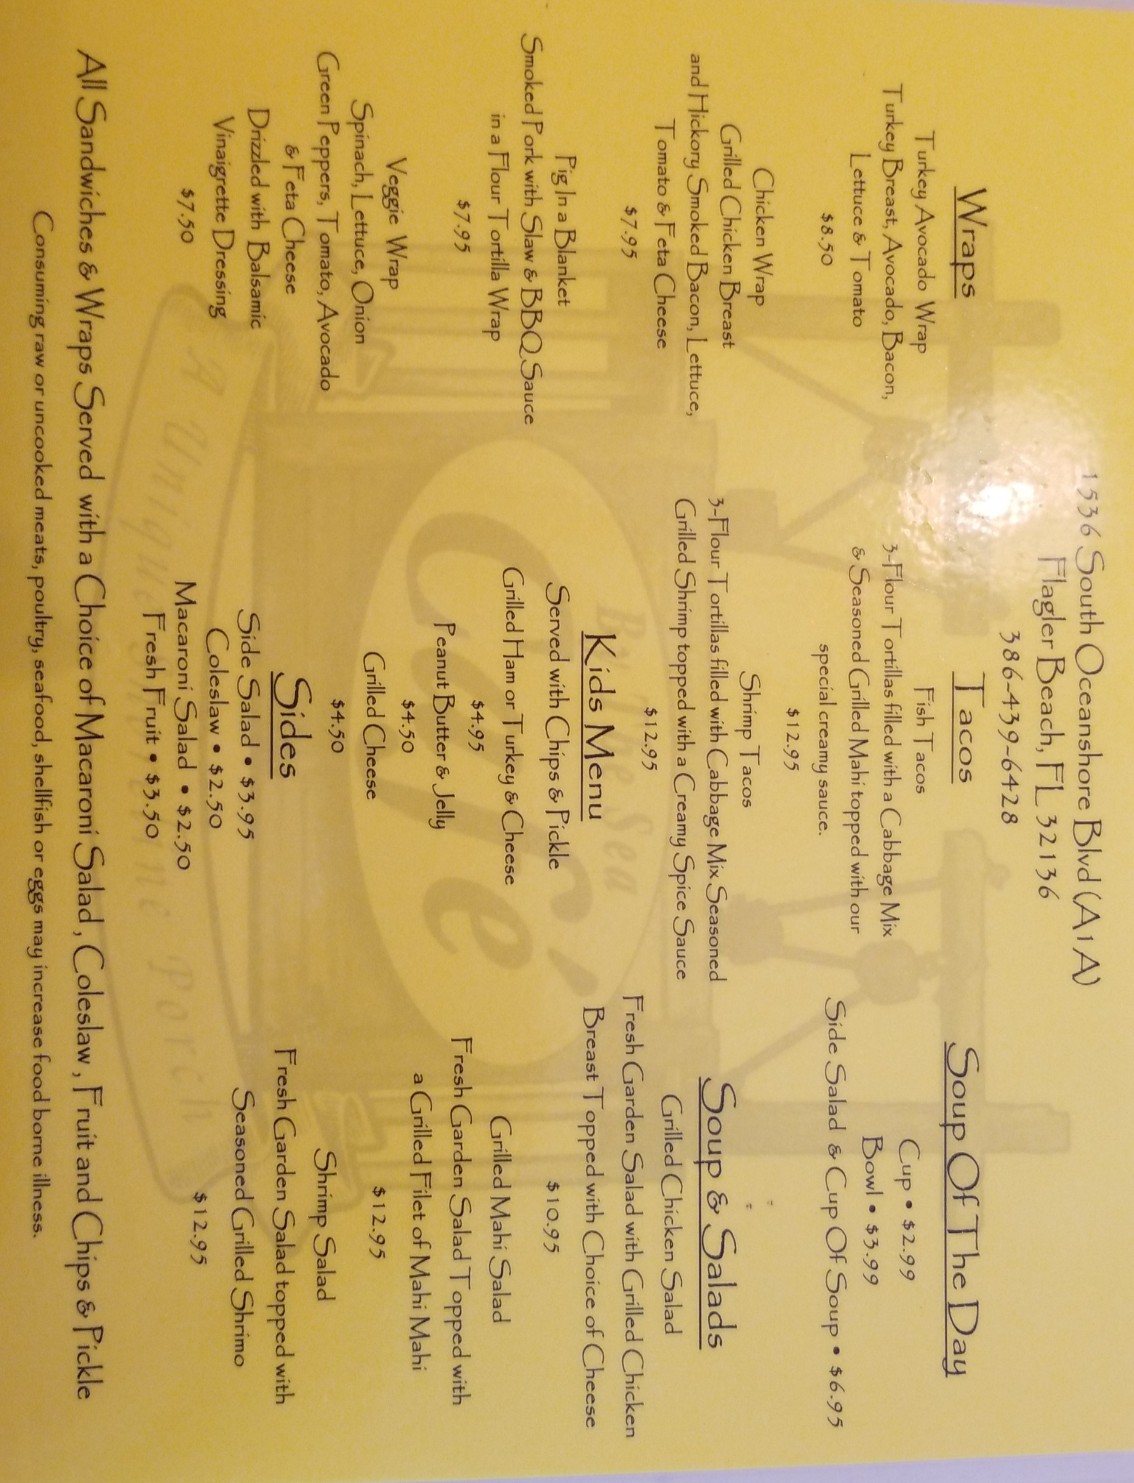 1536 South Oceanshore Blvd (A1A)
Flagler Beach, FL 32136
386-439-6428
Wraps
Turkey Avocado Wrap
Turkey Breast, Avocado, Bacon,
Lettuce & Tomato
$8.50
Chicken Wrap
Grilled Chicken Breast
and Hickory Smoked Bacon, Lettuce,
Tomato & Feta Cheese
$7.95
Pig In a Blanket
Smoked Pork with Slaw & BBQ Sauce
in a Flour Tortilla Wrap
$7.95
Veggie Wrap
Spinach, Lettuce, Onion
Green Peppers, Tomato, Avocado
& Feta Cheese
Drizzled with Balsamic
Vinaigrette Dressing
$7.50
Tacos
Fish Tacos
3-Flour Tortillas filled with a Cabbage Mix
& Seasoned Grilled Mahi topped with our
special creamy sauce.
$12.95
Shrimp Tacos
3-Flour Tortillas filled with Cabbage Mix Seasoned
Grilled Shrimp topped with a Creamy Spice Sauce
$12.95
Kids Menu
Served with Chips & Pickle
Grilled Ham or Turkey & Cheese
$4.95
Peanut Butter & Jelly
$4.50
Grilled Cheese
$4.50
Sides
Side Salad • $3.95
Coleslaw • $2.50
Macaroni Salad • $2.50
Fresh Fruit • $3.50
Soup Of The Day
Cup • $2.99
Bowl • $3.99
Side Salad & Cup Of Soup • $6.95
Soup & Salads
Grilled Chicken Salad
Fresh Garden Salad with Grilled Chicken
Breast Topped with Choice of Cheese
$10.95
Grilled Mahi Salad
Fresh Garden Salad Topped with
a Grilled Filet of Mahi Mahi
$12.95
Shrimp Salad
Fresh Garden Salad topped with
Seasoned Grilled Shrimo
$12.95
All Sandwiches & Wraps Served with a Choice of Macaroni Salad, Coleslaw, Fruit and Chips & Pickle
Consuming raw or uncooked meats, poultry, seafood, shellfish or eggs may increase food borne illness.
By the Sea
Café
A Unique Porch